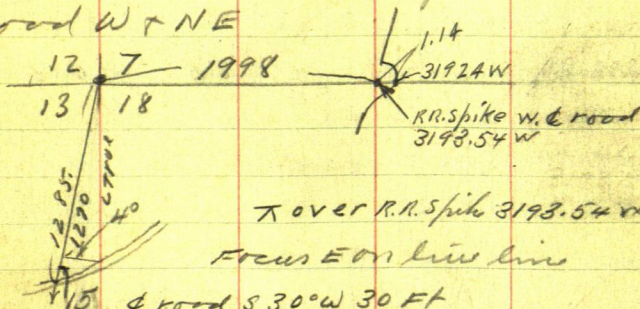 oad W + NE
12 7 1998 1.14
3192.4 W
13 18
R.R. Spike W. ℄ road
3193.54 W
1270
40
⊼ over R.R. Spike 3193.54 W
Focus E on line line
15 ℄ road S 30° W 30 Ft